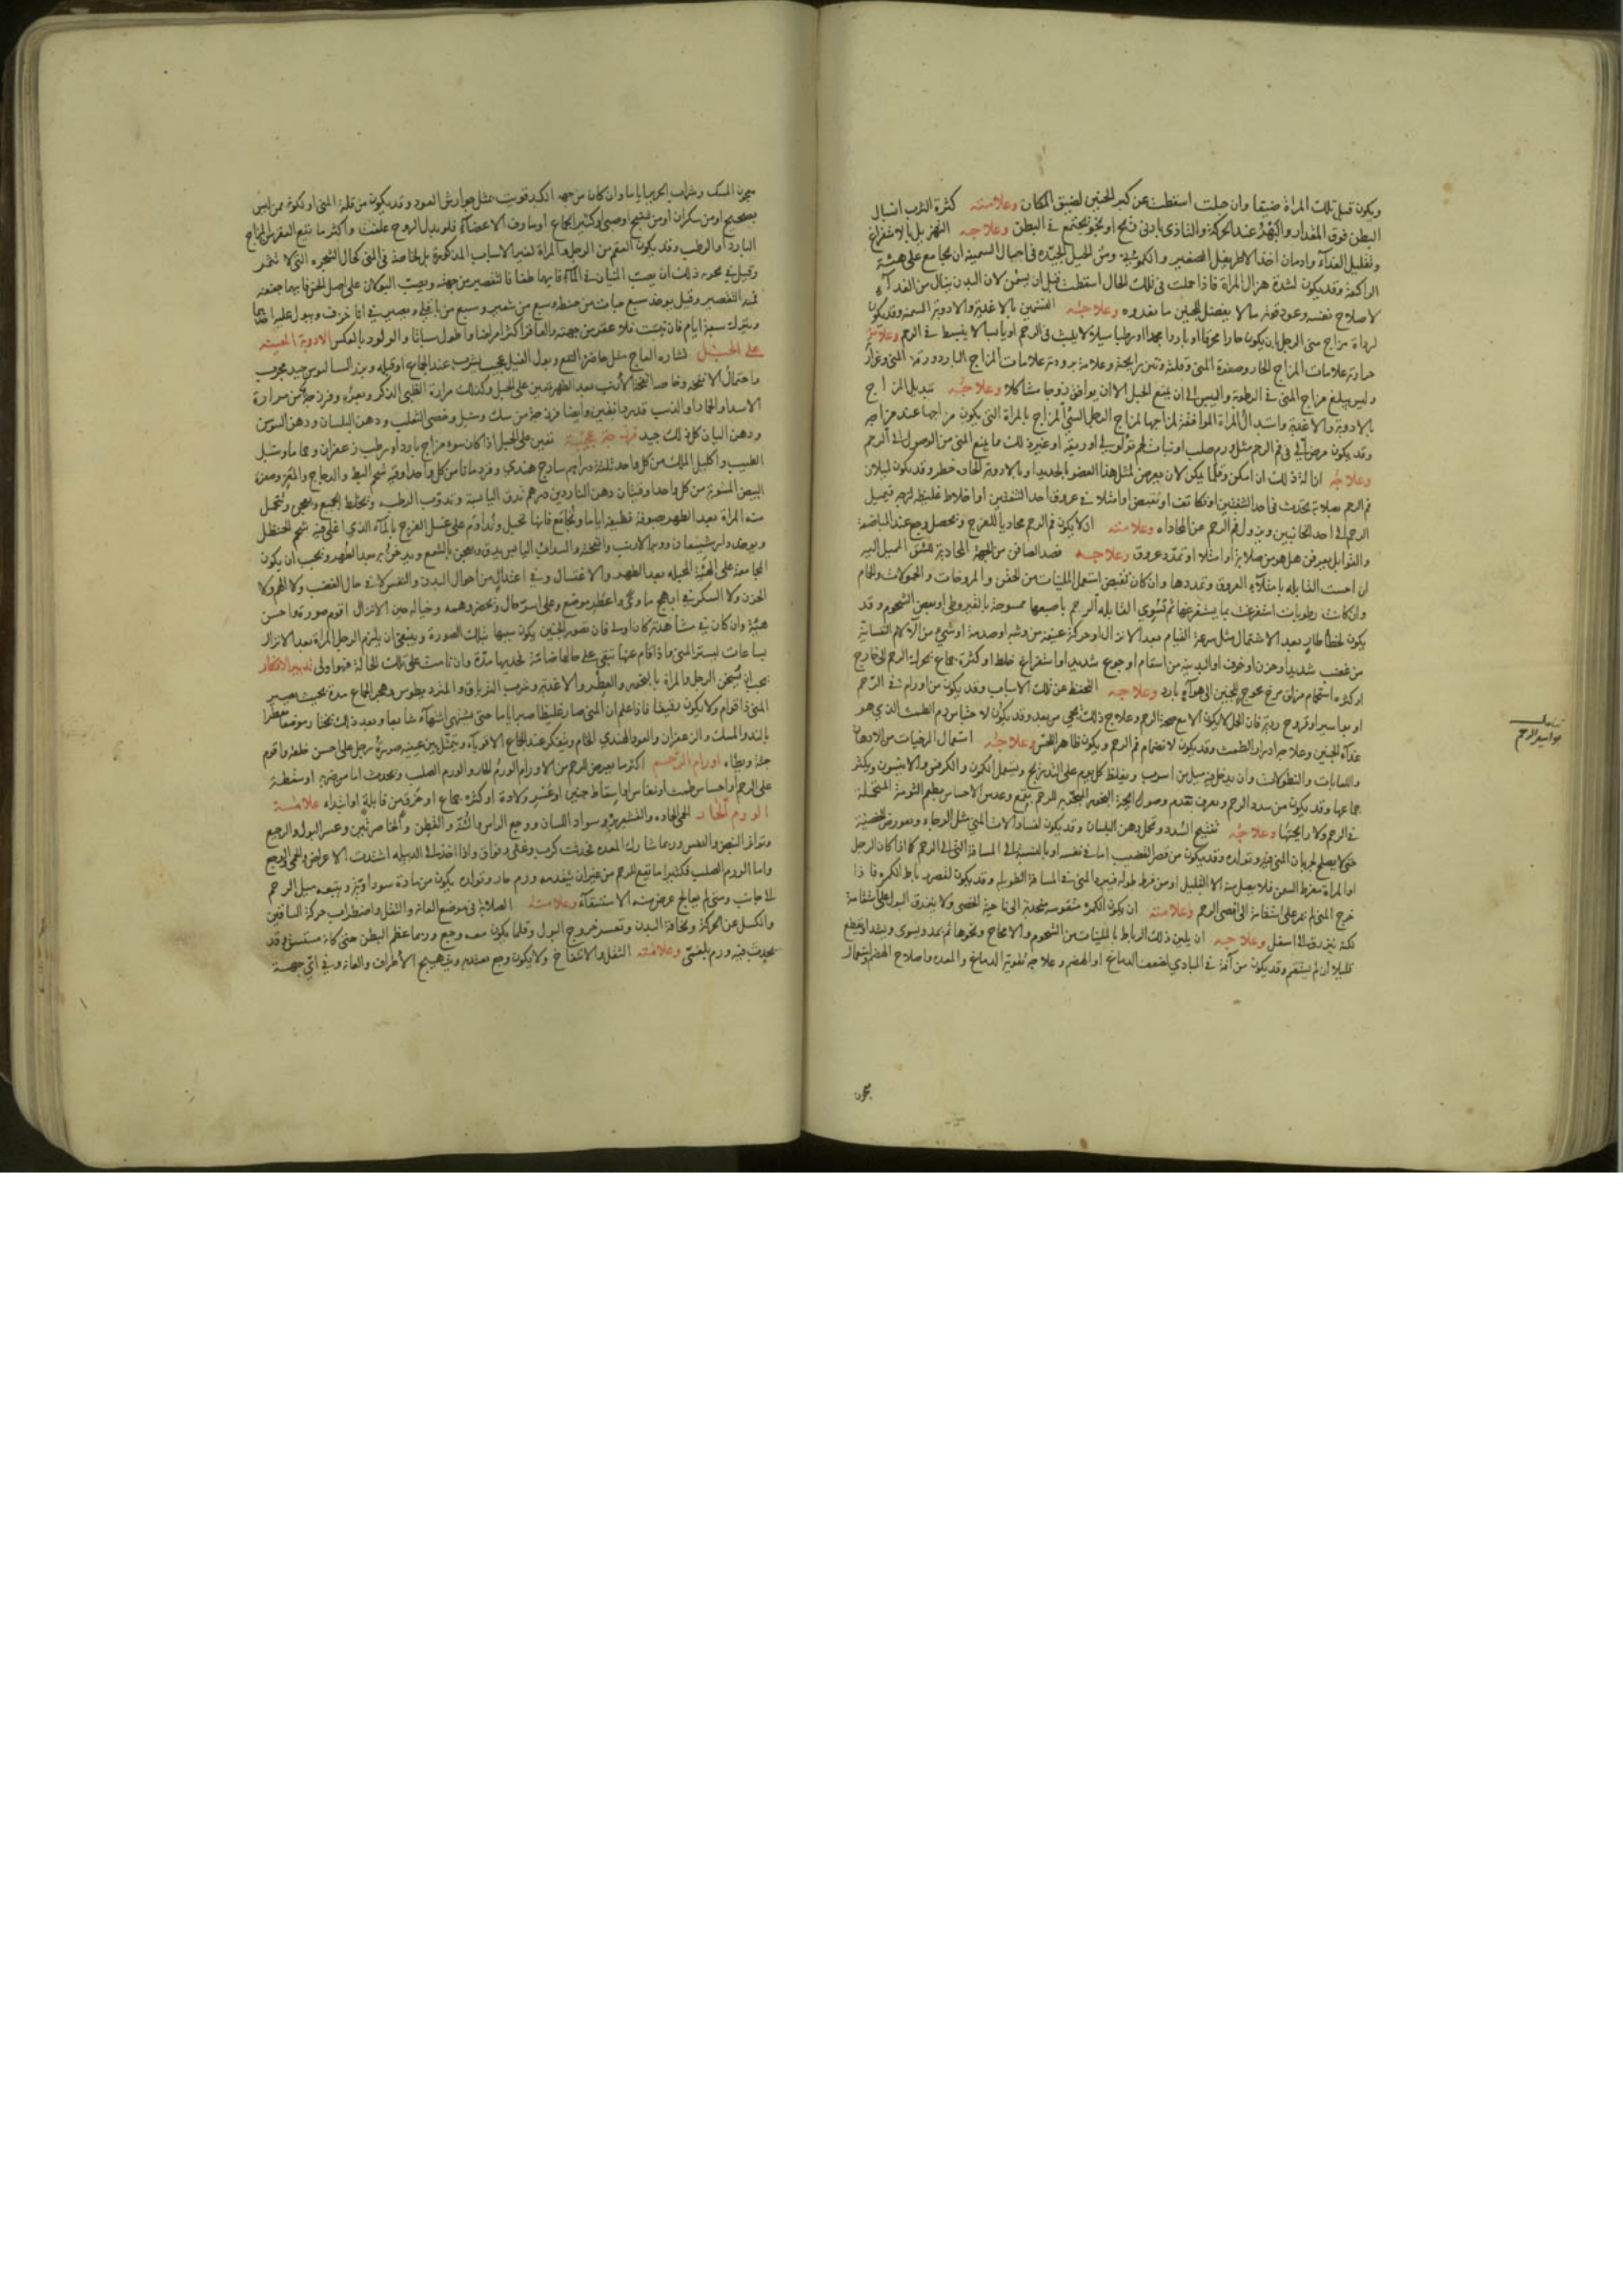 ويكون قبل تلك المرأة ضيقا وان حبلت اسقطت عن كبر الجنين لضيق المكان وعلامته كثرة الثرب انسبال
البطن فوق المقدار والبهر عند الحركة والتاذى بادنى ريح او نجو يجتمع في البطن وعلاجه التهزيل بالاستفراغ
وتقليل الغذاء وادمان اخذ الاطريفل الصغير والكمونى ومن الحيل الجيدة في احبال السمينة ان تجامع على هيئة
الراكعة وقد يكون لشدة هزال المرأة فاذا حبلت في تلك الحال اسقطت قبل ان يسمن لان البدن ينال من الغذاء
لاصلاح نفسه وعود قوته ما لا يفضل للجنين ما يغذوه وعلاجه التسمين بالاغذية والادوية المسمنة وقد يكون
لرداة مزاج منى الرجل بان يكون حارا محرقا او باردا مجمدا او رطبا سيالا لا يلبث في الرحم او يابسا لا ينبسط في الرحم وعلامة
حرارته علامات المزاج الحار وصفرة المنى وقلته ونتن رايحته وعلامة برودته علامات المزاج البارد ورقة المنى
وليس يبلغ مزاج المنى في الرطوبة واليبس الى ان يمنع الحبل الا ان يوافق زوجا مشاكلا وعلاجه تبديل المزاج
بالادوية والاغذية واستبدال المرأة الموافقة لمزاجها لمزاج الرجل السئ المزاج بالمرأة التي يكون مزاجها عند مزاجه
وقد يكون مرض آلى في فم الرحم مثل ورم صلب او نبات لحم ثؤلولى او ربقة او غير ذلك ما يمنع المنى من الوصول الى الرحم
وعلاجه ازالة ذلك ان امكن وقلما يمكن لان تعرض لمثل هذا العضو بالحديد او بالادوية الحادة خطر وقد يكون لميلان
فم الرحم بصلابة تحدث في احد الشقين او تكاثف او تقبض او امتلا في عروق احد الشقين او اخلاط غليظة لزجة فيميل
الرحم الى احد الجانبين ويزول فم الرحم عن المحاذاه وعلامته ان لا يكون فم الرحم محاذيا للفرج وتحصل وجع عند المباضعة
والقوابل يعرفن هل هو من صلابة او امتلا او تمدد عروق وعلاجه فصد الصافن من الجهة المحاذية لشق الميل اليه
ان احست القابله بامتلاء العروق وتمددها وان كان تقبض استعمل الملينات من الحقن والمروخات والحمولات والحمام
وان كانت رطوبات استفرغت بما يستفرغها ثم تسوي القابلة الرحم باصبعها ممسوحة بالقيروطى او بعض الشحوم وقد
يكون لخطا طار بعد الاشتمال مثل سرعة القيام بعد الانزال او حركة عنيفة من وثبه او صدمة او شئ من الآلام النفسانية
من غضب شديد او حزن او خوف او البدنية من اسقام او جوع شديد او استفراغ خلط او كثرة جماع محرك الرحم الى خارج
او كثرة استحمام مزلق مرخ محوج للجنين الى هواء بارد وعلاجه التحفظ عن تلك الاسباب وقد يكون من اورام في الرحم
او بواسير او قروح ردية فان الحبل لا يكون الا مع صحة الرحم وعلاج ذلك يجي من بعد وقد يكون لاحتباس دم الطمث الذي هو
غذاء الجنين وعلاجه ادرار الطمث وقد يكون لانضمام فم الرحم ويكون ظاهرا للحس وعلاجه استعمال المرخيات من الادهان
واللعابات والنطولات وان يدخل فيه ميل من اسرب ويغلظ كل يوم على التدريج ويستعمل الكمون والكرفس والانيسون ويكثر
جماعها وقد يكون من سدد الرحم ويعرف بعدم وصول رايحة البخور المتبخر به للرحم بقمع وعدم الاحساس بطعم الثومة المتحملة
في الرحم ولا رايحتها وعلاجه تفتيح السدد وتحمل دهن البلسان وقد يكون لفساد الات المنى
حتى لا يصلح لجريان المنى فيه وتولده وقد يكون من قصر القضيب اما في نفسه او بالنسبة الى المسافة التي الى الرحم كما اذا كان الرجل
او المرأة مفرط السمن فلا يصل منه الا القليل او من فرط طوله فيبرد المنى في المسافة الطويلة وقد يكون لقصر رباط الكمرة فاذا
خرج المنى لم يمر على استقامة الى اقصى الرحم وعلامته ان يكون الكمرة متقوسه منجذبة الى ناحية الخصى ولا ينزرق البول على استقامة
لكنه ينزرق الى اسفل وعلاجه ان يلين ذلك الرباط بالملينات من الشحوم والامخاخ ونحوها ثم يمد ويسوى ويشد او يقطع
قليلا ان لم يستقم وقد يكون من آفة في المبادي لضعف الدماغ او الهضم وعلاجه تقوية الدماغ والمعدة واصلاح الهضم واستعمال
بواسير الرحم
معجون
معجون المسك وشراب الحرير اياما وان كان من جهة الكبد قويت بمثل جوارش العود وقد يكون من قلة المنى او لكونه ممن ليس
بصحيح او من سكران او من شيخ او صبى او كثير الجماع او ماوف الاعضاء
البارد او الرطب وقد يكون العقم من الرجل والمرأة لغير الاسباب المذكورة بل لخاصة في المنى كحال الشجرة التي لا تثمر
وقيل في تجربة ذلك ان يصب المنيان في الماء فايهما طفا فالتقصير من جهته ويصب البولان على اصل الخس فايهما جففه
فمنه التقصير وقيل يوخذ سبع حبات من حنطة وسبع من شعير وسبع من باقلى ويصير في انا خزف ويبول عليه احدهما
ويترك سبعة ايام فان نبتت فلا عقر من جهته والعاقر اكثر امراضا واطول سباتا والولود بالعكس الادوية المعينة
على الحبل نشارة العاج مثل حاضرة النفع وبول الفيل عجيب يشرب عند الجماع او قبله وبزر السساليوس جيد مجرب
واحتمال الانفحة وخاصة انفحة الارنب بعد الطهر يعين على الحبل وكذلك مرارة الظبى الذكر وبعره وفرزجة من مرارة
الاسد او الذئب قدر دانقين وايضا فرزجة من مسك وسنبل وخصى الثعلب ودهن البلسان ودهن السوسن
ودهن البان كل ذلك جيد فرزجة عجيبة تعين على الحبل اذا كان سوء مزاج بارد او رطب زعفران وحماما وسنبل
الطيب واكليل الملك من كل واحد ثلثة دراهم ساذج هندي وقردمانا من كل واحد اوقية شحم البط والدجاج
البيض المشوية من كل واحد اوقيتان دهن الناردين درهم ويخلط الجميع ويعجن وتتحمل
منه المرأة بعد الطهر بصوفة نظيفة اياما وتجامع فانها تحبل وتداوم على غسل الفرج بالماء الذي اغلى فيه شحم الحنظل
المجامعة على الهيئة المحبلة بعد الطهر والاغتسال وفي اعتدال من احوال البدن والنفس لا في حال الغضب ولا الهم ولا
الحزن ولا السكر في ابهج ماوى واعطر موضع وعلى اسر حال ويحضر وهمه وخياله حين الانزال اقوم صورة واحسن
هيئة وان كان في مشاهدته كان اولى فان تصور الجنين يكون سببها تلك الصورة وينبغي ان يلزم الرجل المرأة بعد الانزال
ساعات ليستقر المنى فاذا قام عنها تبقى على حالها ضامة فخذيها مدة وان نامت على تلك الحالة فهو اولى تدبير الاذكار
يجب ان يسخن الرجل والمرأة بالبخور والعطر والاغذية وشرب الترياق والمثروديطوس وهجر الجماع مدة بحيث يصير
المنى ذا قوام ولا يكون رقيقا فاذا علم ان المنى صار غليظا صبر اياما حتى يشتهى اشتهاء
بالند والمسك والزعفران والعود الهندي الخام ويتفكر عند الجماع الاقوياء ويتمثل بين عينيه صورة رجل على احسن خلقة واقوم
جثة اورام الرحم اكثر ما يعرض للرحم من الاورام الورم الحار والورم الصلب ويحدث اما من ضربة او سقطة
على الرحم او احتباس طمث او نفاس او اسقاط جنين او عسر ولادة او كثرة جماع او خرق من قابلة علامة
الورم الحار الحمى الحادة والقشعريرة وسواد اللسان ووجع الراس والعانة والقطن والخاصرتين وعسر البول والرجيع
وتواتر النبض والنفس وربما شارك المعدة فحدثت كرب وغثى وفواق واذا اخذ الى الدبيلة اشتدت الاعراض والحمى والوجع
واما الورم الصلب فكثيرا ما تقع للرحم من غير ان يتقدمه ورم حار وتولده يكون من مادة سوداوية ويتبعه ميل الرحم
الى جانب ومتى لم يعالج عرض منه الاستسقاء وعلامته الصلابة في موضع العانة والثقل واضطراب حركة الساقين
والكسل عن الحركة ونحافة البدن وتعسر خروج البول وقلما يكون معه وجع وربما عظم البطن حتى كانه مستسق وقد
يحدث فيه ورم بلغمى وعلامته الثقل والانتفاخ ولا يكون وجع معتد به وتهيج الأطراف والعانة وفي اى جهة